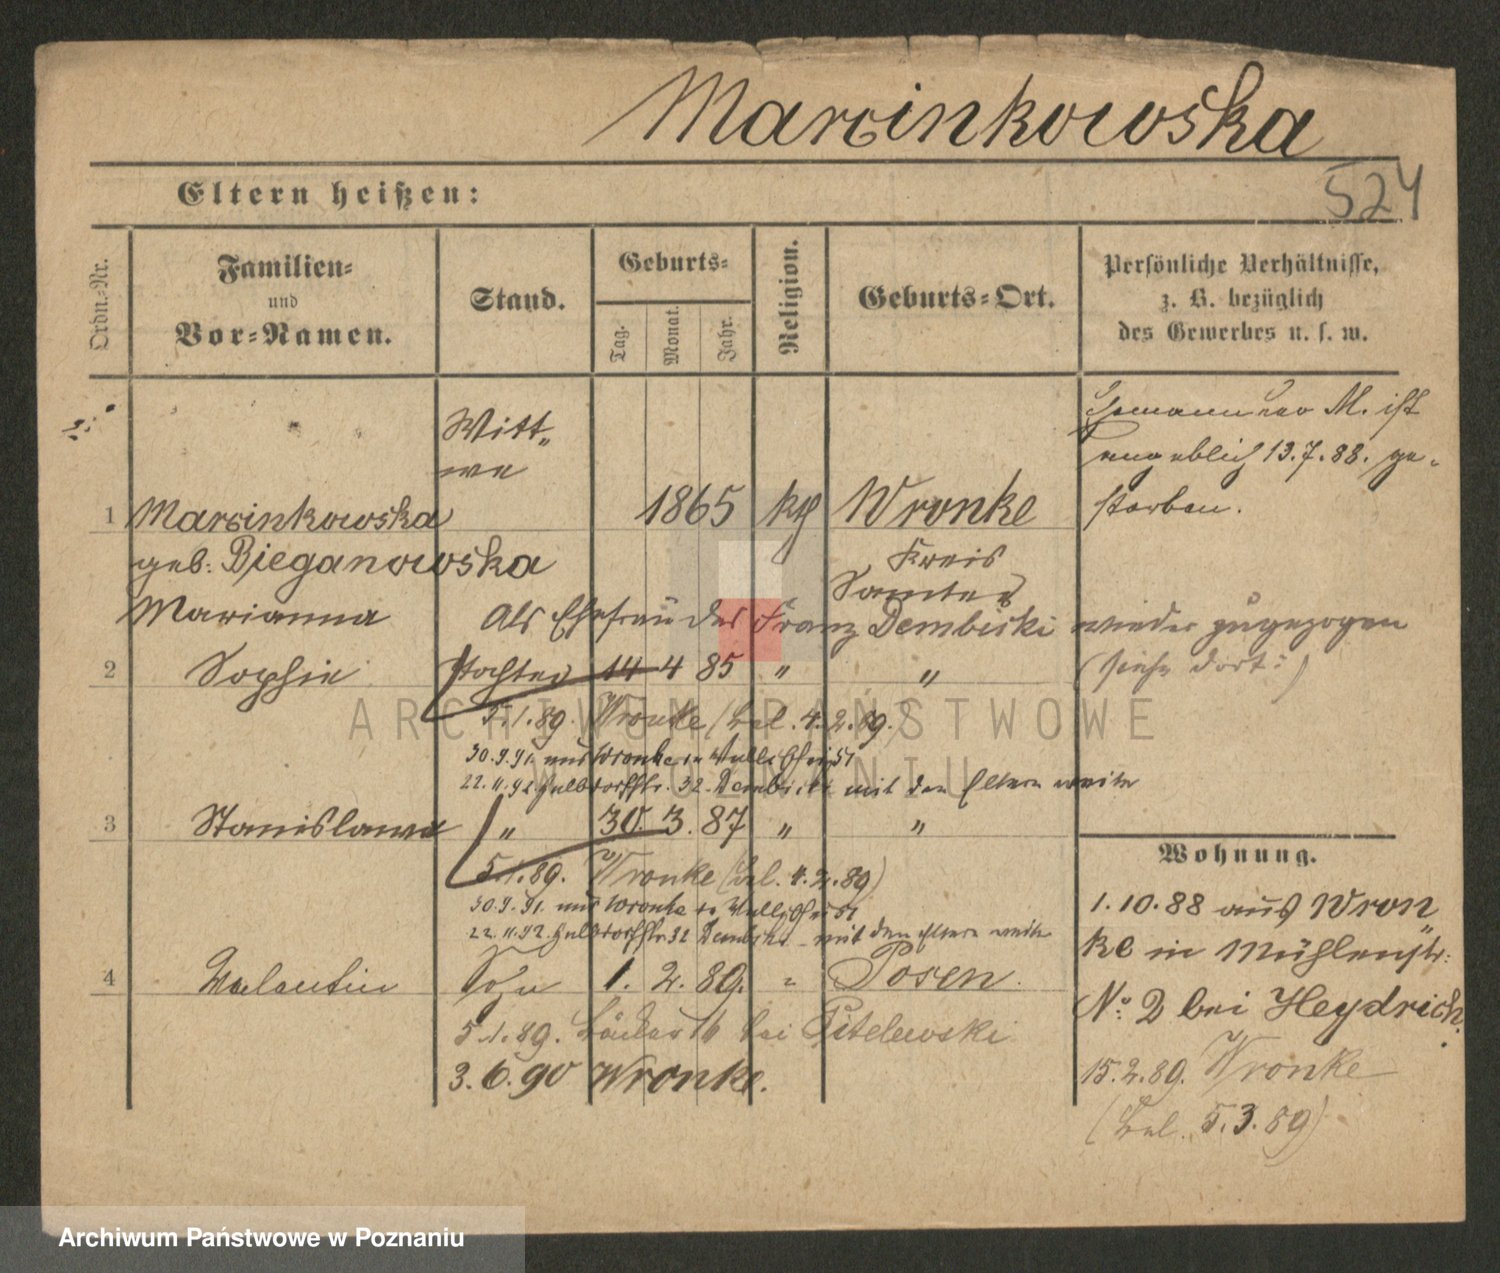 Marcinkowska
Eltern heißen:
524
Ordn.-Nr.
Familien-
und
Vor-Namen.
Stand.
Geburts-
Tag.
Monat.
Jahr.
Religion.
Geburts-Ort.
Persönliche Verhältnisse,
z. B. bezüglich
des Gewerbes u. s. w.
Witt-
we
Ehemann der M. ist
angeblich 13.7.88. ge-
storben.
1 Marcinkowska 1865 kth Wronke
geb: Bieganowska Kreis
Samter
Marianna Als Ehefrau des Franz Dembiski wieder zugezogen
(siehe dort.)
2 Sophie Tochter 14 4 85 " "
5.1.89. Wronke (bel. 4.2.89.)
30.9.91. aus Wronke 51
22.11.92. Halbdorfstr. 32 Dembiski mit den Eltern weiter
3 Stanislawa " 30. 3. 87 " "
5.1.89. Wronke (bel. 4.2.89)
30.9.91. aus Wronke 51
22.11.92. Halbdorfstr. 32 Dembiski mit den Eltern weiter
4 Valentin Sohn 1. 2. 89. " Posen.
5.1.89. bei Pitelewski
3.6.90 Wronke.
Wohnung.
1.10.88 aus Wron
ke in Mühlenstr.
No. 2 bei Heydrich.
15.2.89. Wronke
(bel. 5.3.89)
ARCHIWUM PAŃSTWOWE
W POZNANIU
Archiwum Państwowe w Poznaniu